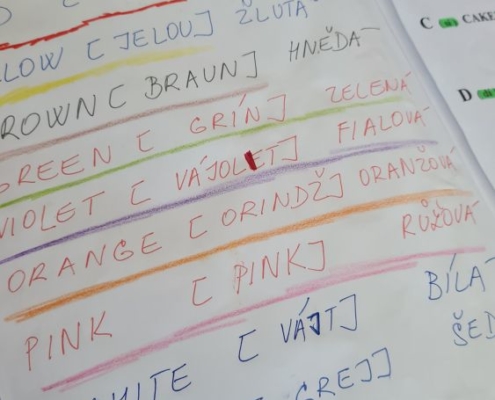 LOW [JELOU] ŽLUTÁ
ROWN [BRAUN] HNĚDÁ
GREEN [GRÍN] ZELENÁ
VIOLET [VÁJOLET] FIALOVÁ
ORANGE [ORINDŽ] ORANŽOVÁ
PINK [PINK] RŮŽOVÁ
ITE [VÁJT] BÍLÁ
GREJ] ŠED
C CAKE
D